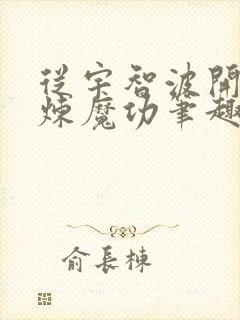 從宇智波開
煉魔功筆趣
俞長棟